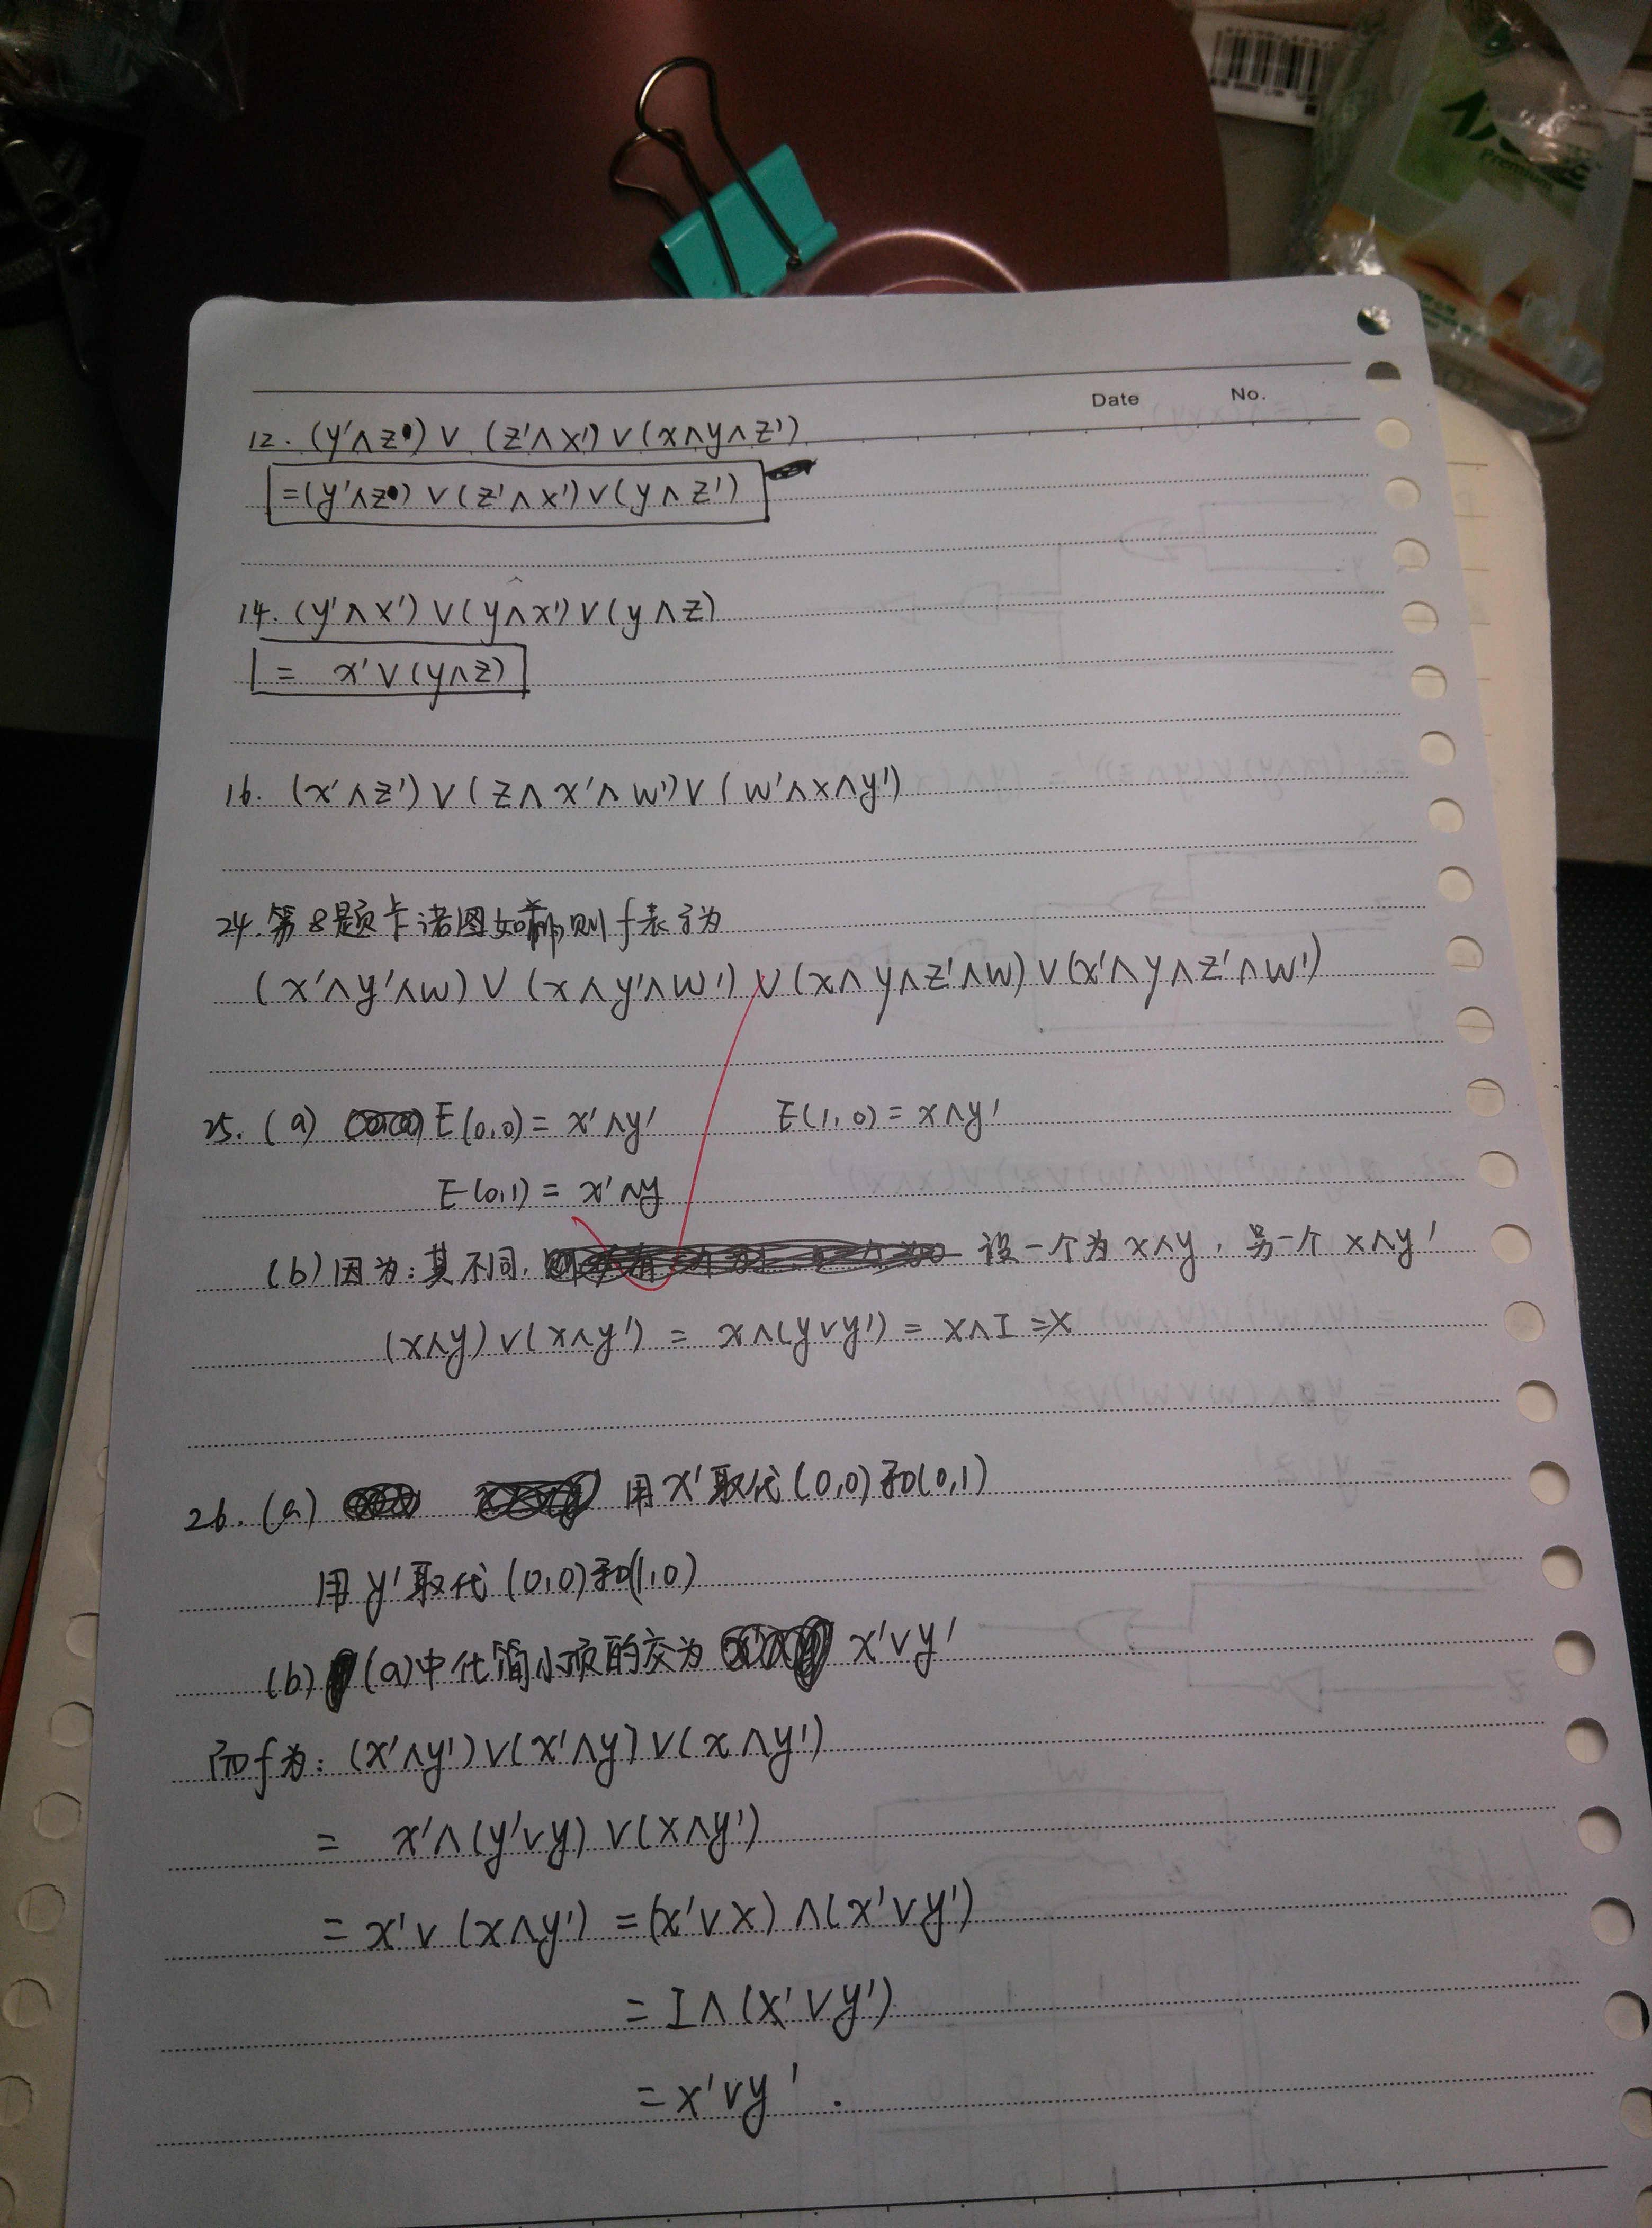 Premium
Date No.
12. (y'∧z) ∨ (z'∧x') ∨ (x∧y∧z')
=(y'∧z) ∨ (z'∧x') ∨ (y∧z')
14. (y'∧x') ∨ (y∧x') ∨ (y∧z)
= x'∨(y∧z)
16. (x'∧z') ∨ (z∧x'∧w') ∨ (w'∧x∧y')
24. 第8题卡诺图如 则f表示为
(x'∧y'∧w) ∨ (x∧y'∧w') ∨ (x∧y∧z'∧w) ∨ (x'∧y∧z'∧w')
25. (a) E(0,0) = x'∧y' E(1,0) = x∧y'
E(0,1) = x'∧y
(b) 因为:其不同, 设一个为 x∧y, 另一个 x∧y'
(x∧y) ∨ (x∧y') = x∧(y∨y') = x∧I =x
26. (a) 用x'取代(0,0)和(0,1)
用y'取代(0,0)和(1,0)
(b) (a)中化简小项的交为 x'∨y'
而f为: (x'∧y') ∨ (x'∧y) ∨ (x∧y')
= x'∧(y'∨y) ∨ (x∧y')
= x'∨ (x∧y') = (x'∨x) ∧ (x'∨y')
= I∧(x'∨y')
= x'∨y'.